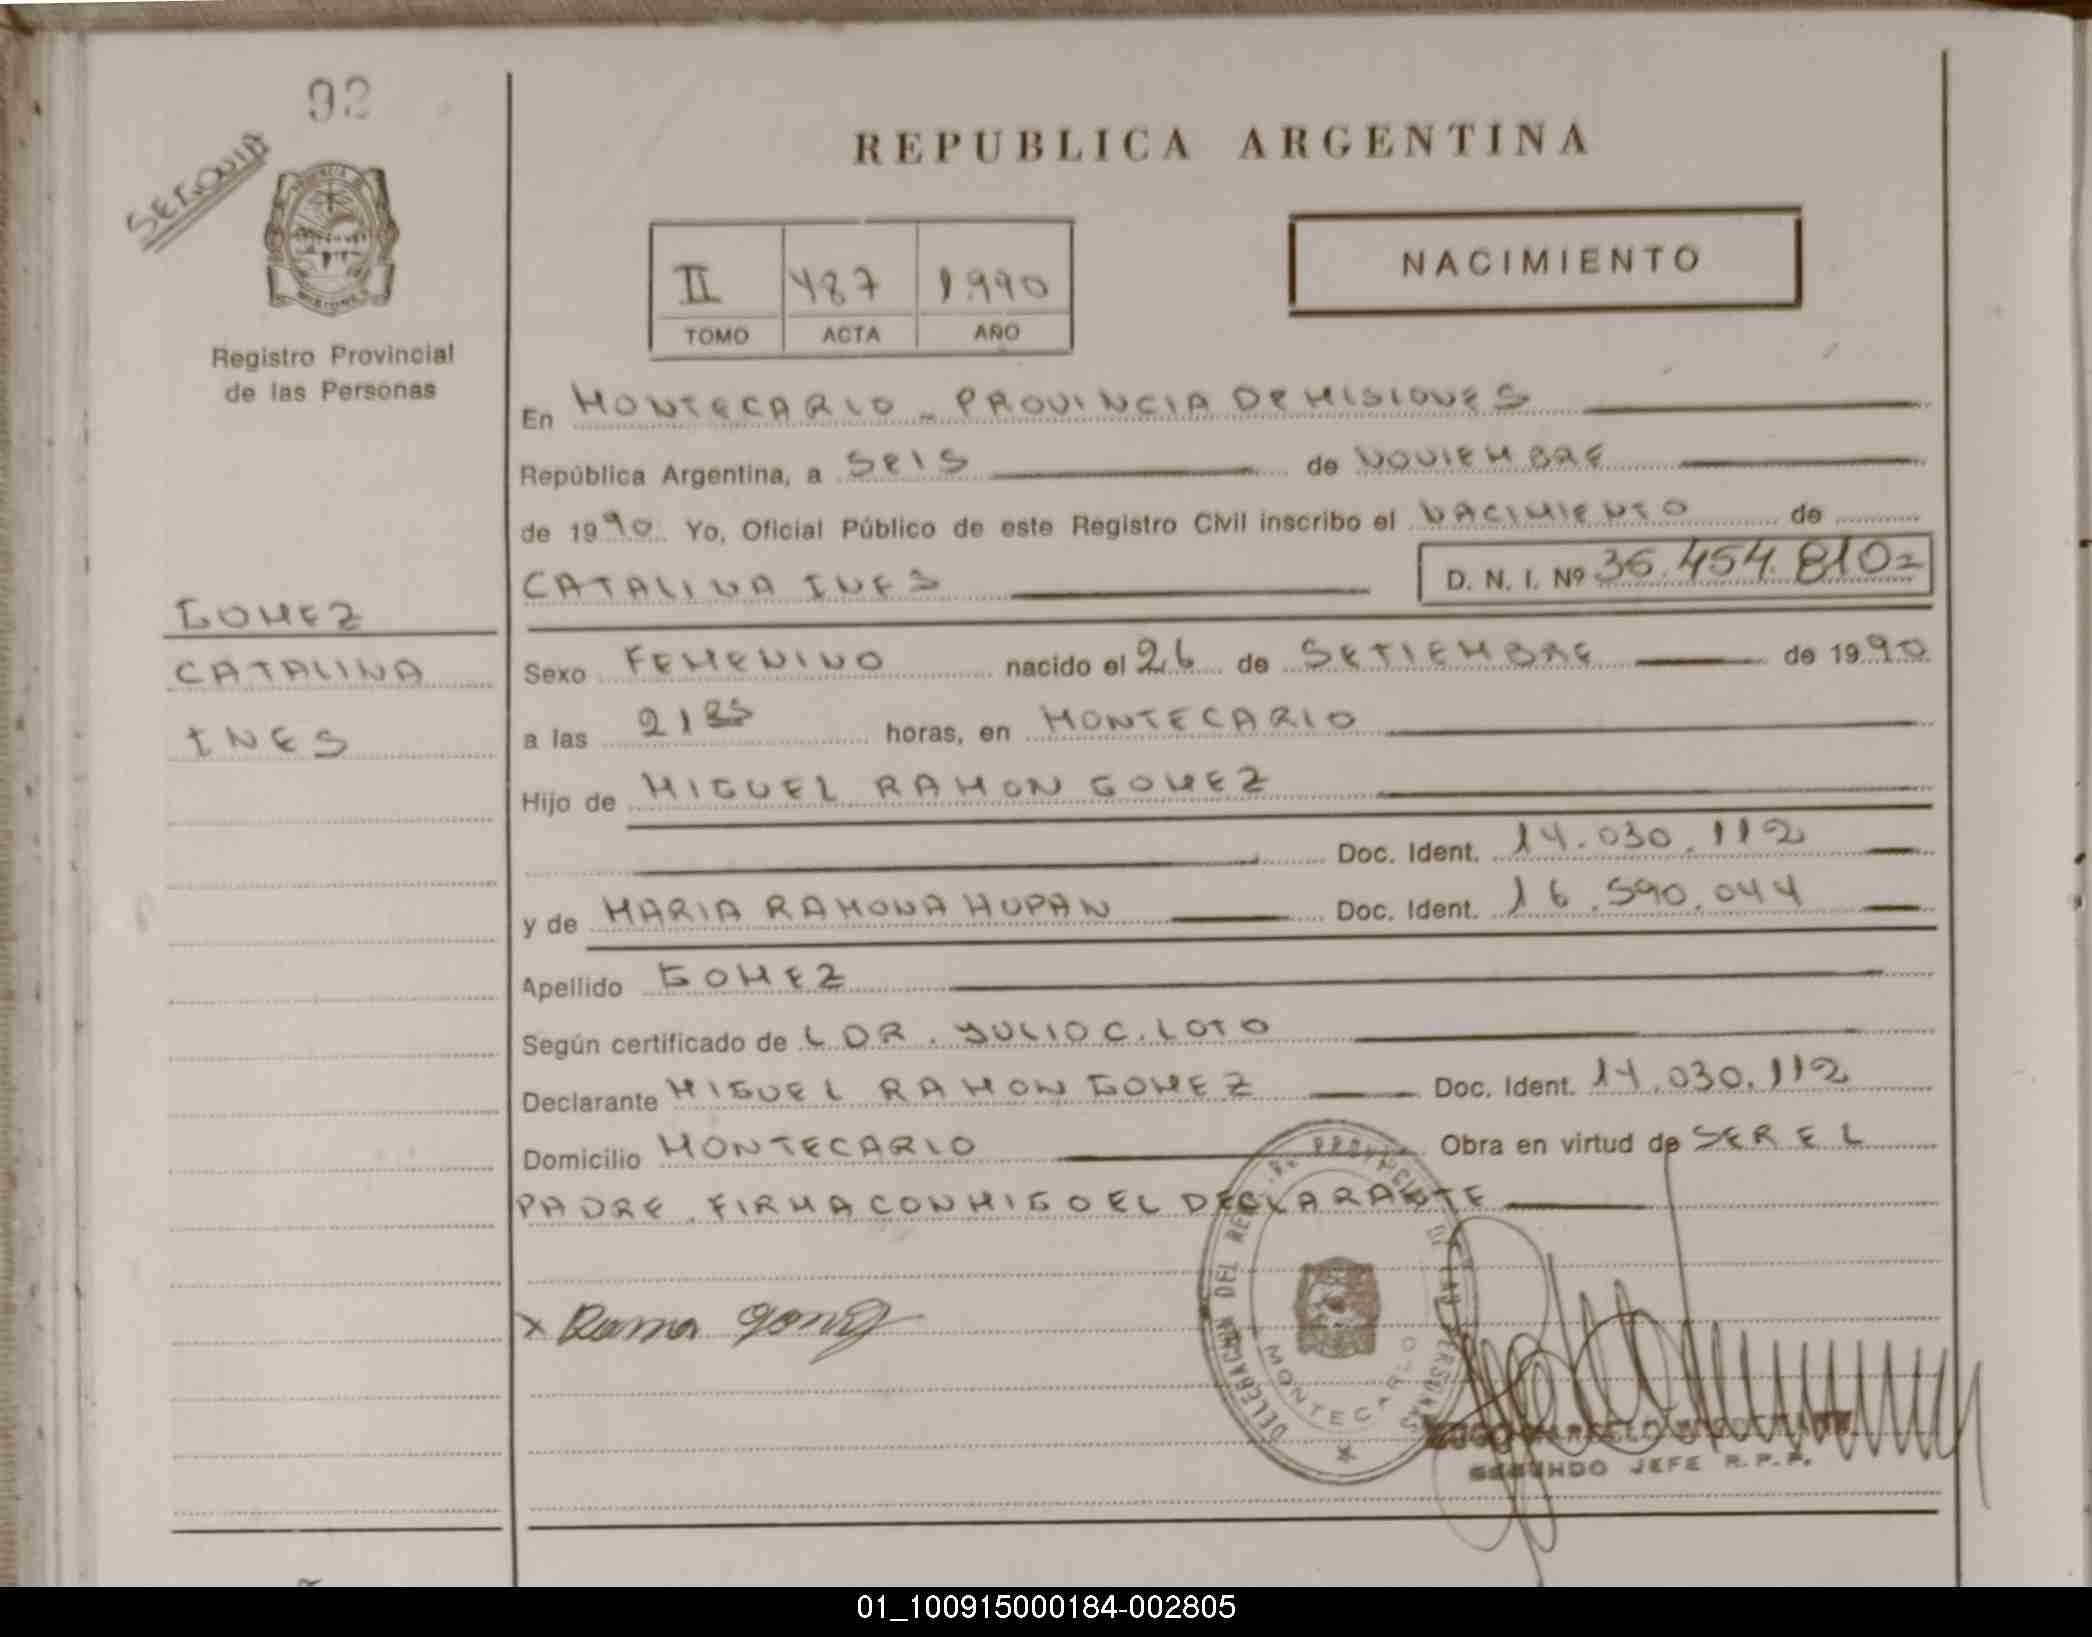 92
SEGOVIA
REPUBLICA ARGENTINA
II 487 1990
TOMO ACTA AÑO
NACIMIENTO
Registro Provincial
de las Personas
En MONTECARLO - PROVINCIA DE MISIONES
República Argentina, a SEIS de NOVIEMBRE
de 1990 Yo, Oficial Público de este Registro Civil inscribo el NACIMIENTO de
CATALINA INES D. N. I. Nº 35.454.810=
GOMEZ
CATALINA
INES
Sexo FEMENINO nacido el 26 de SETIEMBRE de 1990
a las 2135 horas, en MONTECARLO
Hijo de MIGUEL RAMON GOMEZ
Doc. Ident. 14.030.112
y de MARIA RAMONA HUPAN Doc. Ident. 16.590.044
Apellido GOMEZ
Según certificado de L DR. JULIO C. LOTO
Declarante MIGUEL RAMON GOMEZ Doc. Ident. 14.030.112
Domicilio MONTECARLO Obra en virtud de SER EL
PADRE. FIRMA CONMIGO EL DECLARANTE
x Ramon Gomez
DELEGACION DEL REG. PROVINCIAL DE LAS PERSONAS
MONTECARLO
SEGUNDO JEFE R.P.P.
01_100915000184-002805